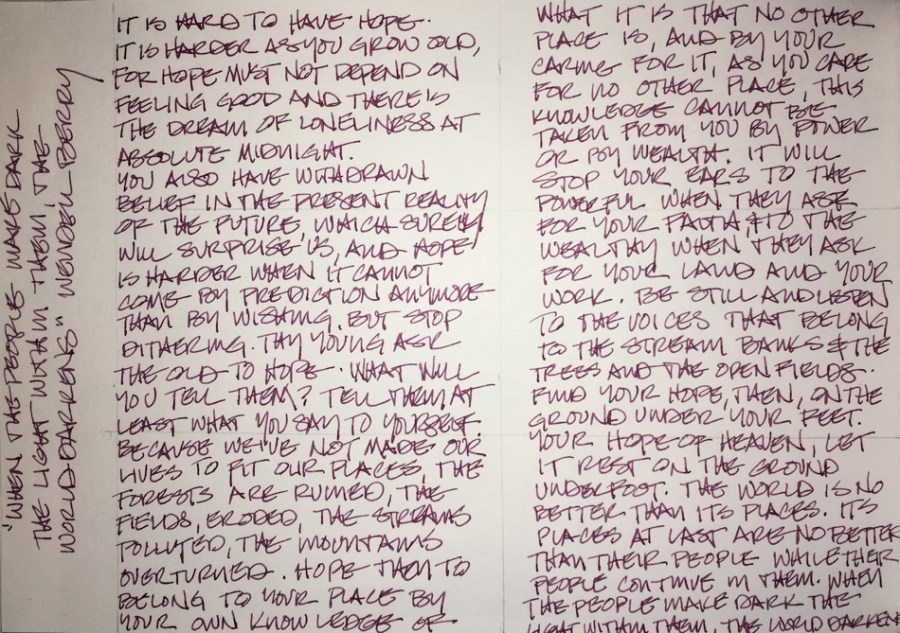 "WHEN THE PEOPLE MAKE DARK
THE LIGHT WITHIN THEM, THE
WORLD DARKENS" WENDELL BERRY
IT IS HARD TO HAVE HOPE.
IT IS HARDER AS YOU GROW OLD,
FOR HOPE MUST NOT DEPEND ON
FEELING GOOD AND THERE IS
THE DREAM OF LONELINESS AT
ABSOLUTE MIDNIGHT.
YOU ALSO HAVE WITHDRAWN
BELIEF IN THE PRESENT REALITY
OF THE FUTURE, WHICH SURELY
WILL SURPRISE US, AND HOPE
IS HARDER WHEN IT CANNOT
COME BY PREDICTION ANYMORE
THAN BY WISHING. BUT STOP
DITHERING. THY YOUNG ASK
THE OLD TO HOPE. WHAT WILL
YOU TELL THEM? TELL THEM AT
LEAST WHAT YOU SAY TO YOURSELF.
BECAUSE WE'VE NOT MADE OUR
LIVES TO FIT OUR PLACES, THE
FORESTS ARE RUINED, THE
FIELDS, ERODED, THE STREAMS
POLLUTED, THE MOUNTAINS
OVERTURNED. HOPE THEN TO
BELONG TO YOUR PLACE BY
YOUR OWN KNOWLEDGE OF
WHAT IT IS THAT NO OTHER
PLACE IS, AND BY YOUR
CARING FOR IT, AS YOU CARE
FOR NO OTHER PLACE, THIS
KNOWLEDGE CANNOT BE
TAKEN FROM YOU BY POWER
OR BY WEALTH. IT WILL
STOP YOUR EARS TO THE
POWERFUL WHEN THEY ASK
FOR YOUR FAITH & TO THE
WEALTHY WHEN THEY ASK
FOR YOUR LAND AND YOUR
WORK. BE STILL AND LISTEN
TO THE VOICES THAT BELONG
TO THE STREAM BANKS & THE
TREES AND THE OPEN FIELDS.
FIND YOUR HOPE, THEN, ON THE
GROUND UNDER YOUR FEET.
YOUR HOPE OF HEAVEN, LET
IT REST ON THE GROUND
UNDERFOOT. THE WORLD IS NO
BETTER THAN ITS PLACES. ITS
PLACES AT LAST ARE NO BETTER
THAN THEIR PEOPLE WHILE THEIR
PEOPLE CONTINUE IN THEM. WHEN
THE PEOPLE MAKE DARK THE
LIGHT WITHIN THEM, THE WORLD DARKENS